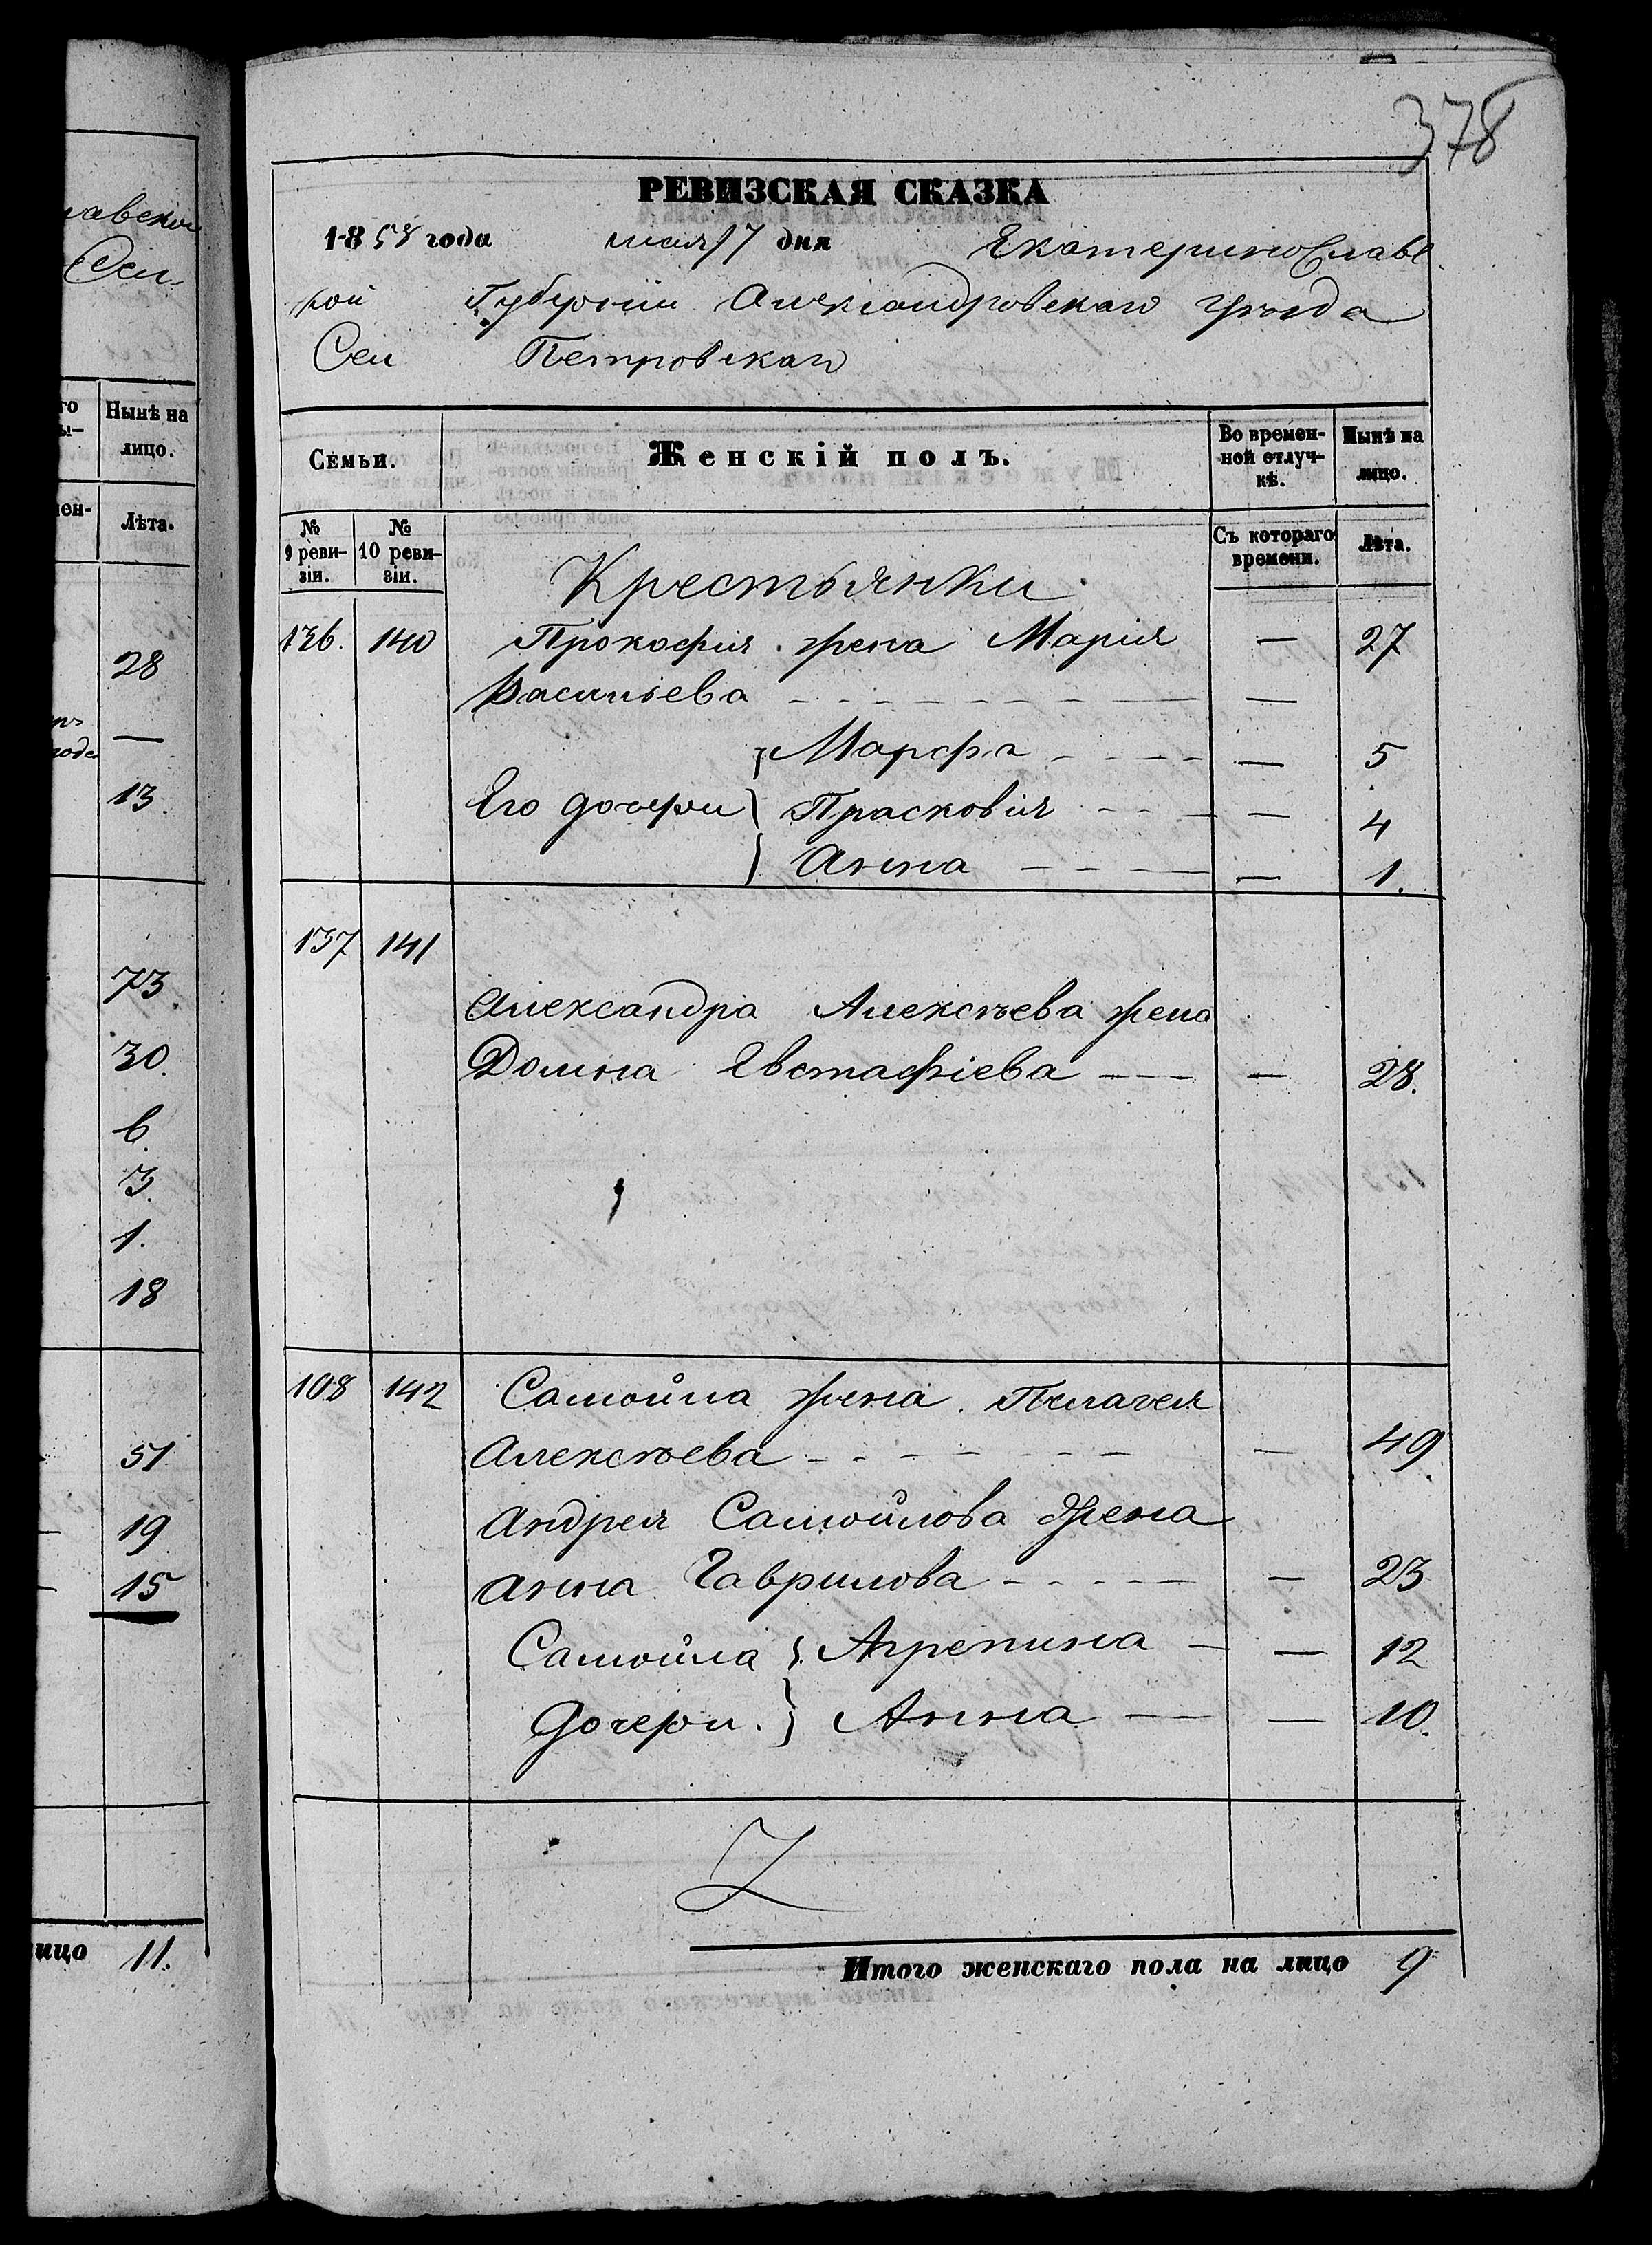 378
РЕВИЗСКАЯ СКАЗКА
1858 года маія 7 дня Екатеринославс
кой Губерніи Александровскаго уѣзда
Сел Петровскаго
Семьи. Женскій полъ. Во времен- Нынѣ на
ной отлуч- лицо.
кѣ.
№ № Съ котораго Лѣта.
9 реви- 10 реви- времени.
зіи. зіи.
Крестьянки
136. 140 Прокофія жена Марія — 27
Васильева — —
Марфа — — 5
Его дочери Прасковія — — 4
Анна — — 1.
137 141
Александра Алексѣева жена
Домна Евстафіева — — 28.
108 142 Самойла жена Пелагея
Алексѣева — — 49
Андрея Самойлова жена
Анна Гаврилова — — 23
Самойла Агрепина — — 12
дочери. Анна — — 10.
Итого женскаго пола на лицо 9
авской
Сел
го Нынѣ на
ы- лицо.
ен- Лѣта.
28
—
13.
73.
30.
6.
3.
1.
18
51
19
15
лицо 11.